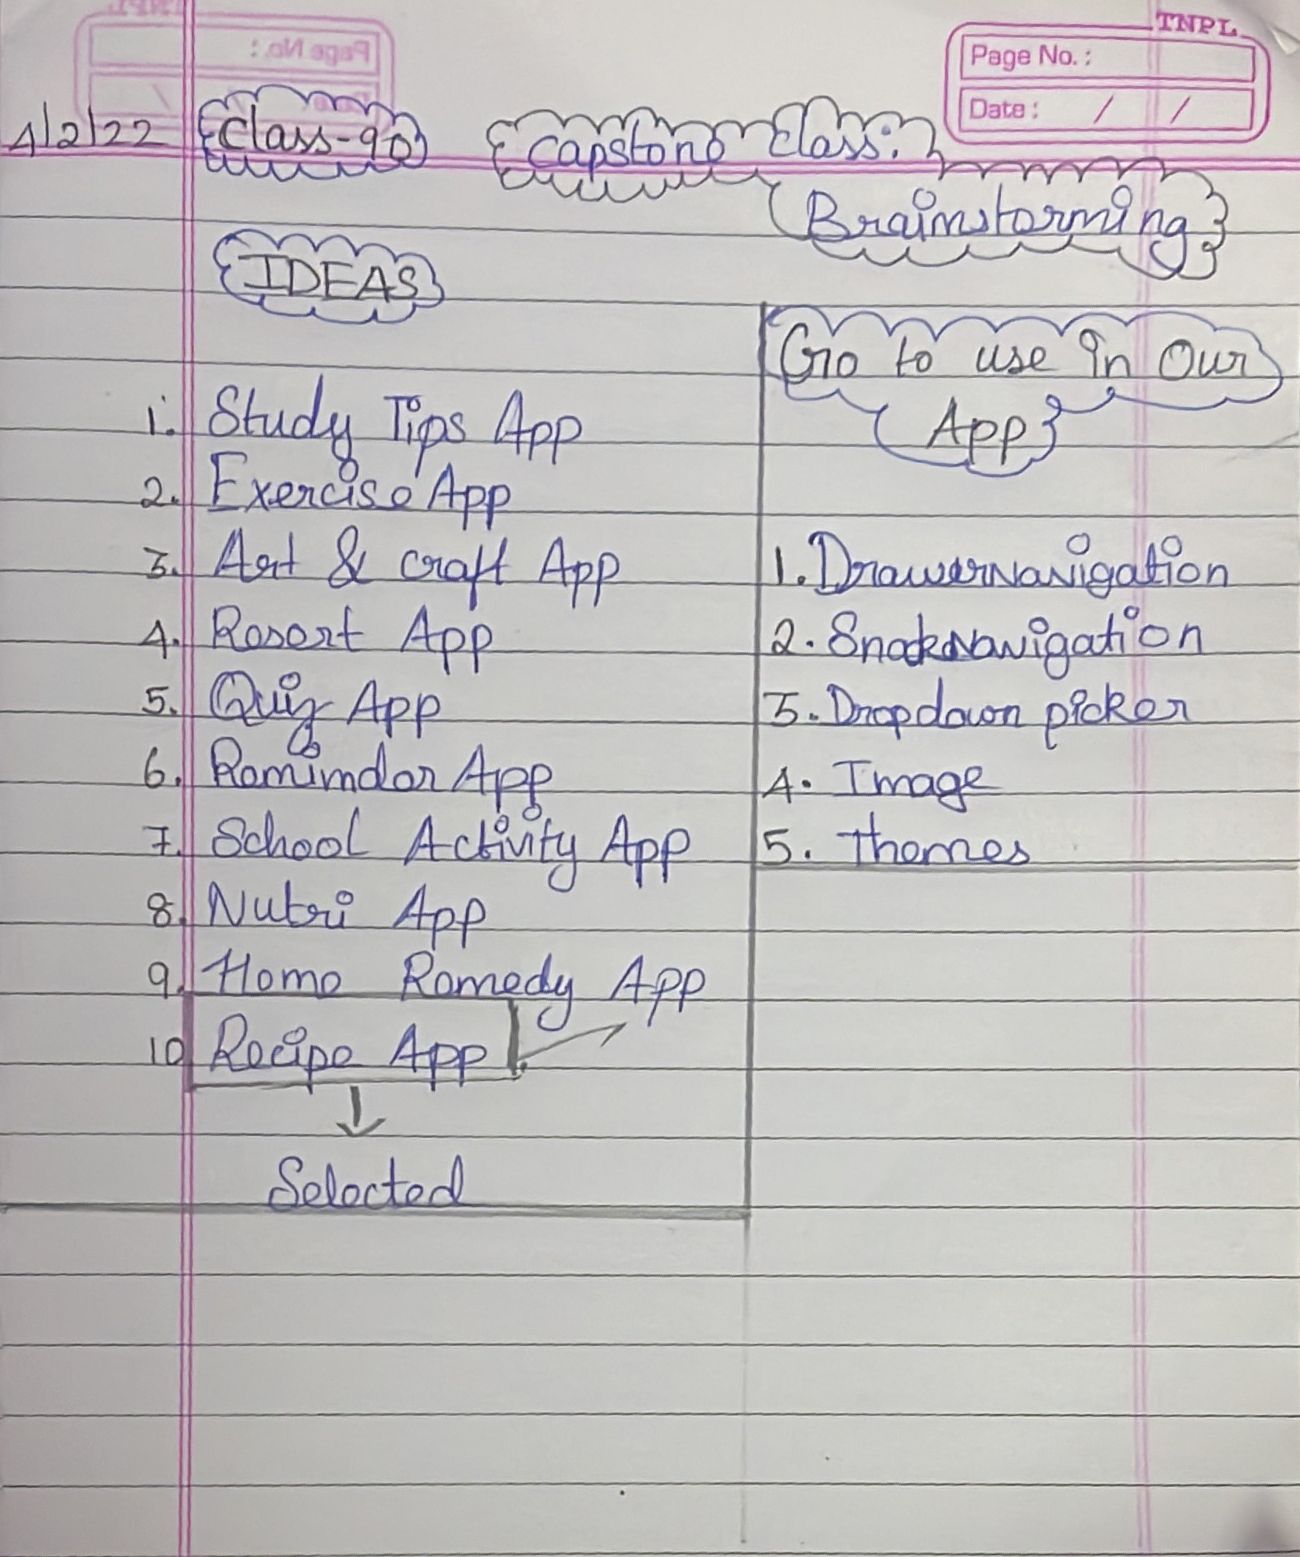 TNPL
Page No.:
Date: / /
4/2/22 Class-90 Capstone Class:
Brainstorming
IDEAS
Go to use in Our
App
1. Study Tips App
2. Exercise App
3. Art & craft App
4. Resort App
5. Quiz App
6. Remimder App
7. School Activity App
8. Nutri App
9. Home Remedy App
10 Recipe App
Selected
1. DrawerNavigation
2. SnackNavigation
3. Dropdown picker
4. Image
5. Themes